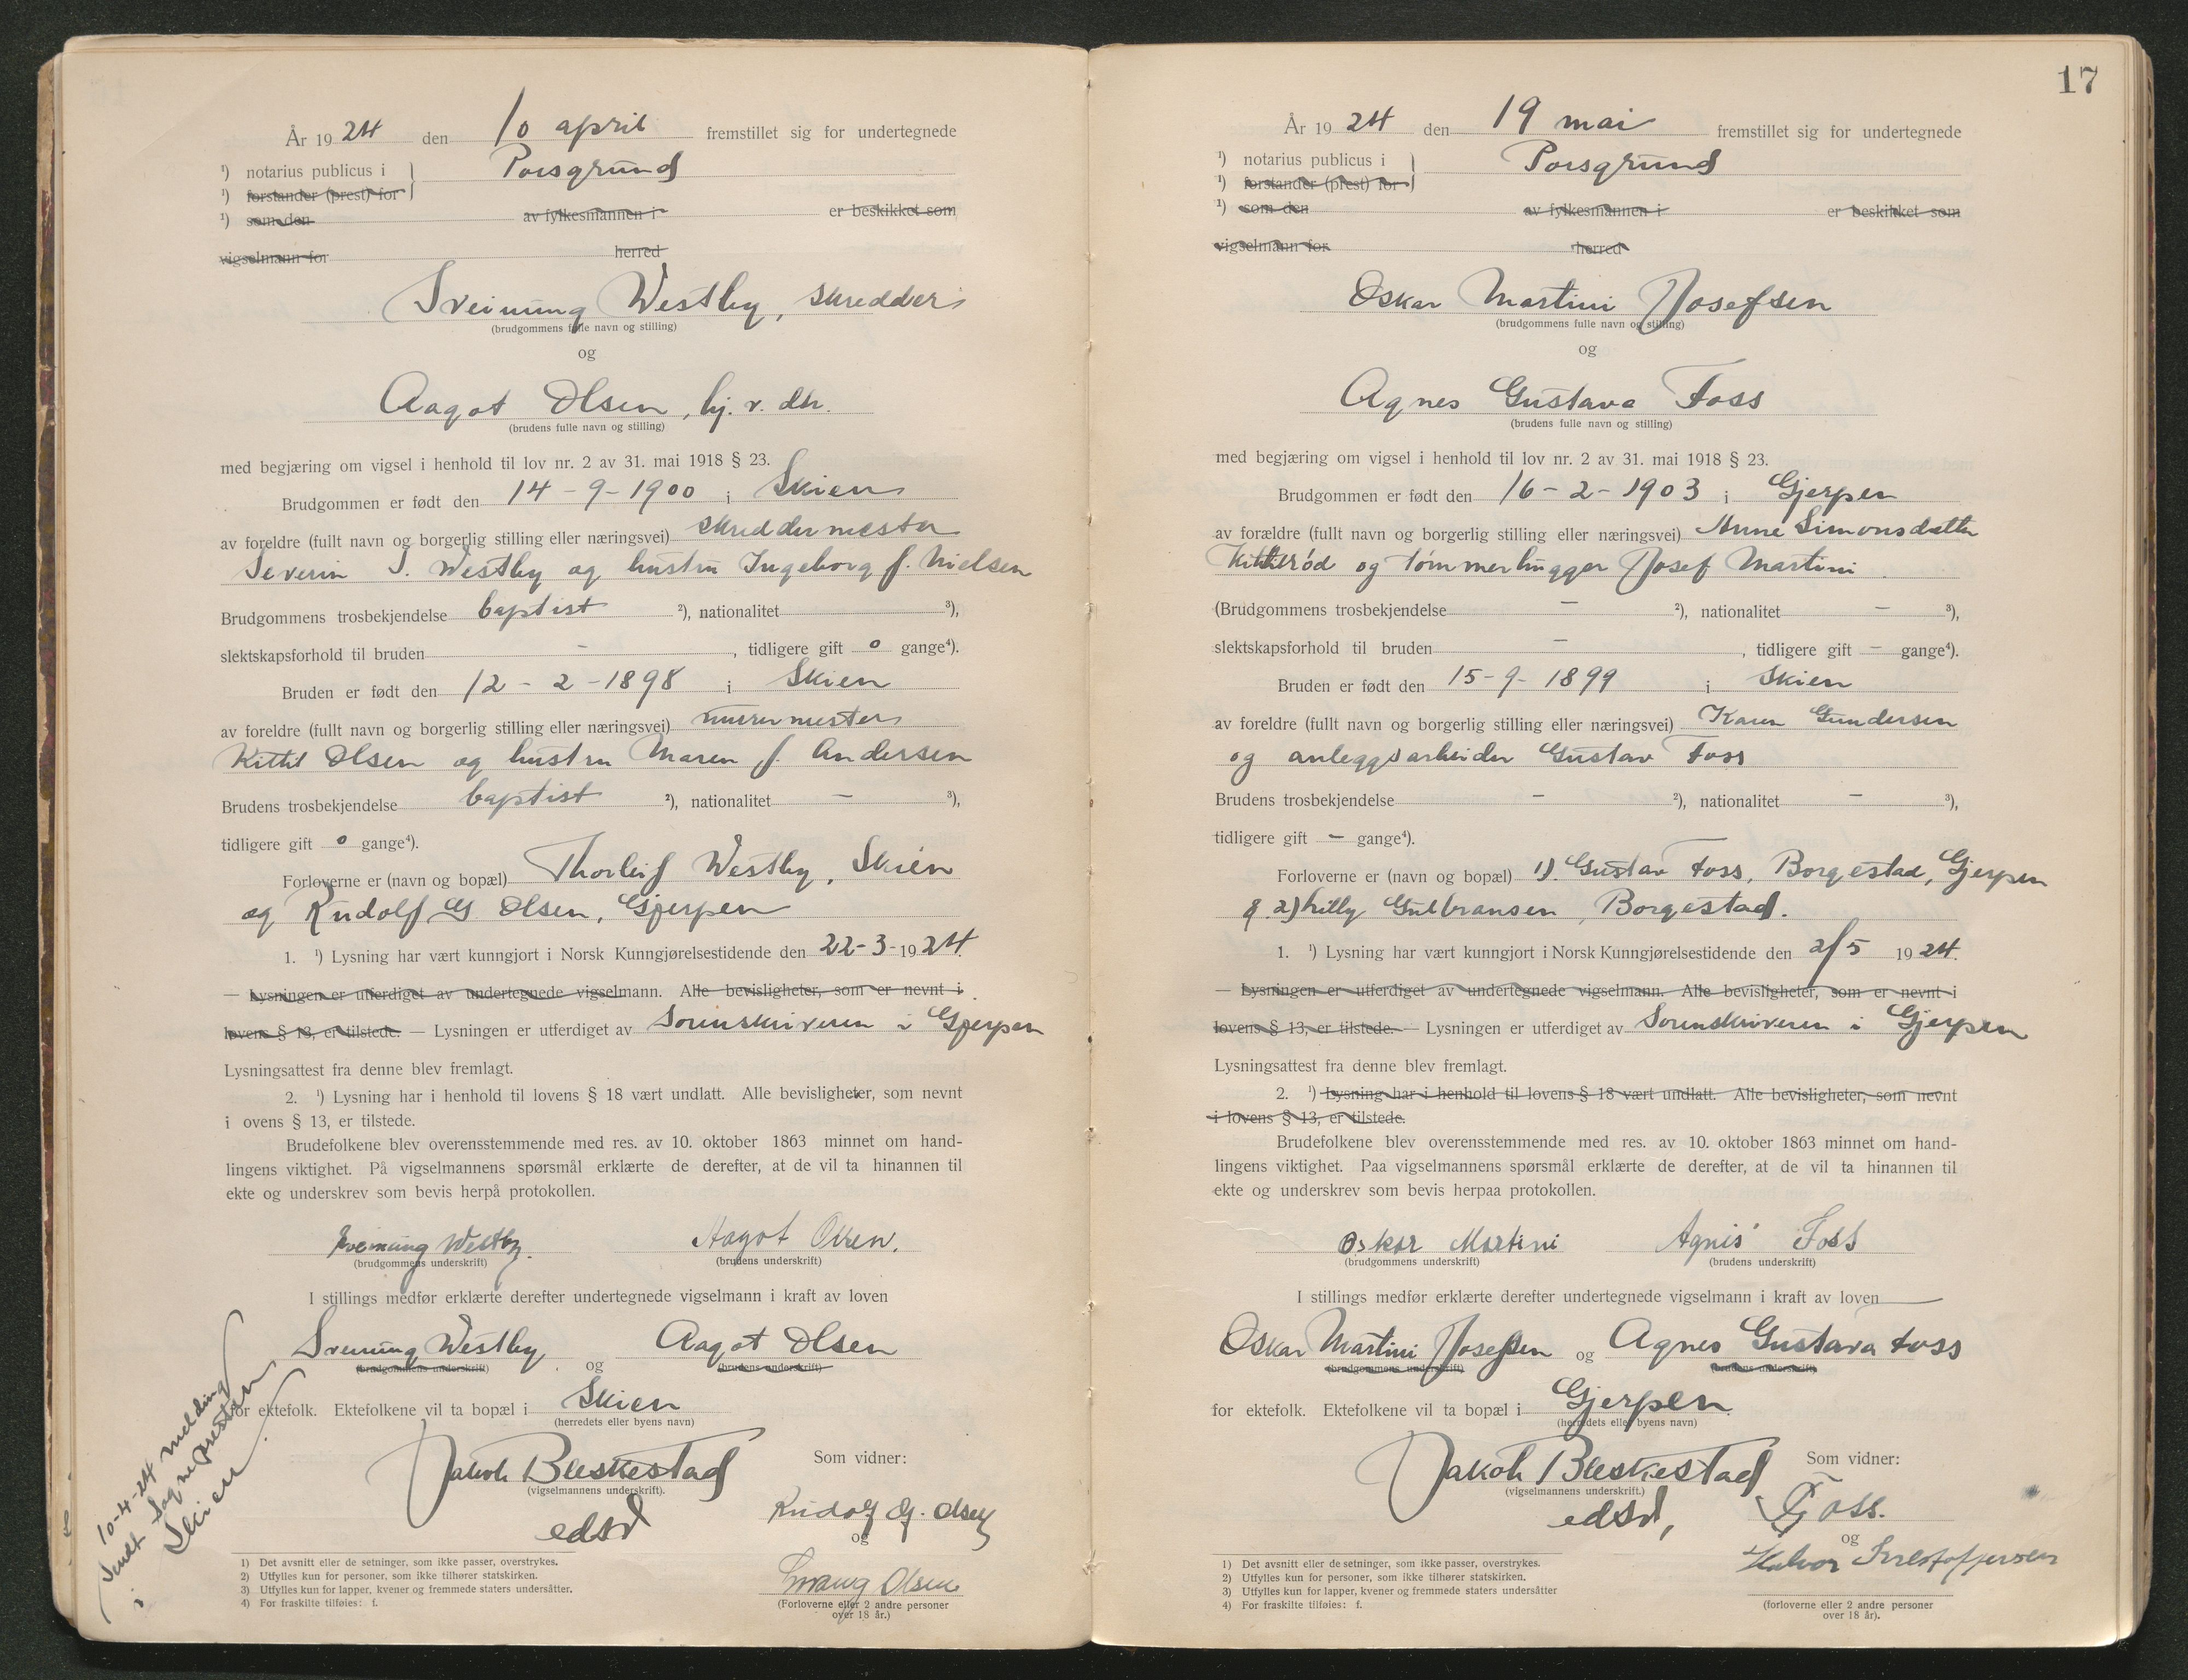 År 19 24 den 10 april fremstillet sig for undertegnede
¹) notarius publicus i } Porsgrund
¹) forstander (prest) for
¹) som den av fylkesmannen i er beskikket som
vigselmann for herred
Sveinung Westby, skredder
(brudgommens fulle navn og stilling)
og
Aagot Olsen, hj. v. dtr.
(brudens fulle navn og stilling)
med begjæring om vigsel i henhold til lov nr. 2 av 31. mai 1918 § 23.
Brudgommen er født den 14-9-1900 i Skien
av foreldre (fullt navn og borgerlig stilling eller næringsvei) skreddermester
Severin S. Westby og hustru Ingeborg f. Nielsen
Brudgommens trosbekjendelse baptist ²), nationalitet ³),
slektskapsforhold til bruden - , tidligere gift 0 gange⁴).
Bruden er født den 12-2-1898 i Skien
av foreldre (fullt navn og borgerlig stilling eller næringsvei) murermester
Kittil Olsen og hustru Maren f. Andersen
Brudens trosbekjendelse baptist ²), nationalitet — ³),
tidligere gift 0 gange⁴).
Forloverne er (navn og bopæl) Thorleif Westby, Skien
og Rudolf G Olsen, Gjerpen
1. ¹) Lysning har vært kunngjort i Norsk Kunngjørelsestidende den 22-3-1924.
— Lysningen er utferdiget av undertegnede vigselmann. Alle bevisligheter, som er nevnt i
lovens § 13, er tilstede. — Lysningen er utferdiget av Sorenskriveren i Gjerpen
Lysningsattest fra denne blev fremlagt.
2. ¹) Lysning har i henhold til lovens § 18 vært undlatt. Alle bevisligheter, som nevnt
i ovens § 13, er tilstede.
Brudefolkene blev overensstemmende med res. av 10. oktober 1863 minnet om hand-
lingens viktighet. På vigselmannens spørsmål erklærte de derefter, at de vil ta hinannen til
ekte og underskrev som bevis herpå protokollen.
Sveinung Westby. Aagot Olsen.
(brudgommens underskrift) (brudens underskrift)
I stillings medfør erklærte derefter undertegnede vigselmann i kraft av loven
Sveinung Westby og Aagot Olsen
(brudgommens underskrift) (brudens underskrift)
for ektefolk. Ektefolkene vil ta bopæl i Skien
(herredets eller byens navn)
Jakob Bleskestad Som vidner:
(vigselmannens underskrift).
edsv Rudolf G. Olsen
og
Olsen
(Forloverne eller 2 andre personer
over 18 år.)
1) Det avsnitt eller de setninger, som ikke passer, overstrykes.
2) Utfylles kun for personer, som ikke tilhører statskirken.
3) Utfylles kun for lapper, kvener og fremmede staters undersåtter.
4) For fraskilte tilføies: f.
10-4-24 melding
sendt Sognepresten
i Skien
17
År 19 24 den 19 mai fremstillet sig for undertegnede
¹) notarius publicus i } Porsgrund
¹) forstander (prest) for
¹) som den av fylkesmannen i er beskikket som
vigselmann for herred
Oskar Martini Josefsen
(brudgommens fulle navn og stilling)
og
Agnes Gustava Foss
(brudens fulle navn og stilling)
med begjæring om vigsel i henhold til lov nr. 2 av 31. mai 1918 § 23.
Brudgommen er født den 16-2-1903 i Gjerpen
av forældre (fullt navn og borgerlig stilling eller næringsvei) Anne Simonsdatter
Kittilrød og tømmerhugger Josef Martini
(Brudgommens trosbekjendelse — ²), nationalitet — ³),
slektskapsforhold til bruden — , tidligere gift — gange⁴).
Bruden er født den 15-9-1899 i Skien
av foreldre (fullt navn og borgerlig stilling eller næringsvei) Karen Gundersen
og anleggsarbeider Gustav Foss
Brudens trosbekjendelse — ²), nationalitet — ³),
tidligere gift — gange⁴).
Forloverne er (navn og bopæl) 1). Gustav Foss, Borgestad, Gjerpen
& 2) Lilly Gulbransen, Borgestad.
1. ¹) Lysning har vært kunngjort i Norsk Kunngjørelsestidende den 2/5 1924.
— Lysningen er utferdiget av undertegnede vigselmann. Alle bevisligheter, som er nevnt i
lovens § 13, er tilstede. — Lysningen er utferdiget av Sorenskriveren i Gjerpen
Lysningsattest fra denne blev fremlagt.
2. ¹) Lysning har i henhold til lovens § 18 vært undlatt. Alle bevisligheter, som nevnt
i lovens § 13, er tilstede.
Brudefolkene blev overensstemmende med res. av 10. oktober 1863 minnet om hand-
lingens viktighet. Paa vigselmannens spørsmål erklærte de derefter, at de vil ta hinannen til
ekte og underskrev som bevis herpaa protokollen.
Oskar Martini Agnes Foss
(brudgommens underskrift) (brudens underskrift)
I stillings medfør erklærte derefter undertegnede vigselmann i kraft av loven
Oskar Martini Josefsen og Agnes Gustava Foss
(brudgommens underskrift) (brudens underskrift)
for ektefolk. Ektefolkene vil ta bopæl i Gjerpen
(herredets eller byens navn)
Jakob Bleskestad Som vidner:
(vigselmannens underskrift.)
edsv, G Foss.
og
Halvor Kristoffersen
(forloverne eller 2 andre personer
over 18 år).
1) Det avsnitt eller de setninger, som ikke passer, overstrykes.
2) Utfylles kun for personer, som ikke tilhører statskirken.
3) Utfylles kun for lapper, kvener og fremmede staters undersåtter
4) For fraskilte tilføies: f.